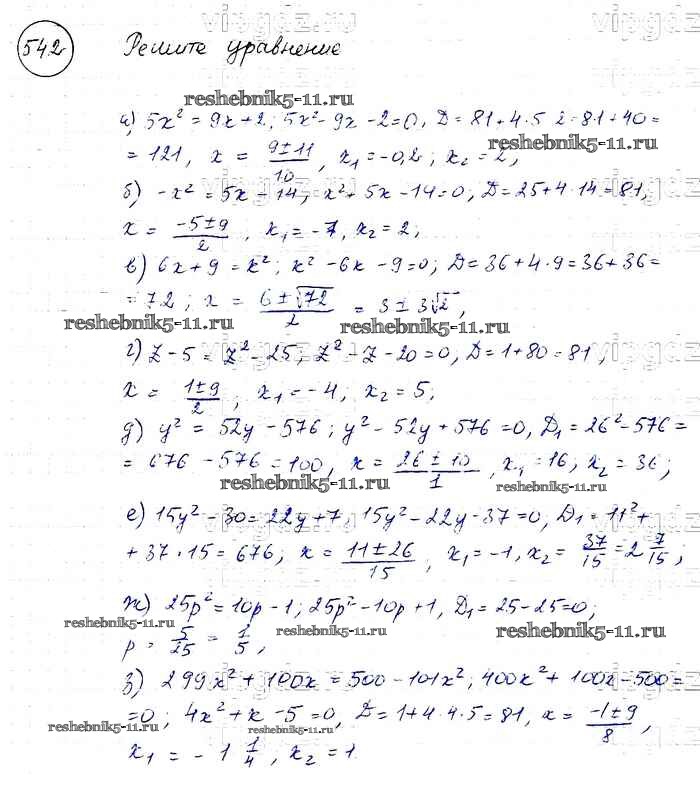 vipgdz.ru vipgdz.ru vipgdz
542 Решите уравнение
reshebnik5-11.ru
а) 5x² = 9x+2; 5x²-9x-2=0, D = 81+4·5·2=81+40=
= 121, x = (9±11)/10, x₁=-0,2; x₂ = 2,
reshebnik5-11.ru
б) -x² = 5x-14, x²+5x-14=0, D=25+4·14=81,
x = (-5±9)/2, x₁=-7, x₂ = 2;
в) 6x+9 = x²; x²-6x-9=0; D=36+4·9=36+36=
= 72; x = (6±√72)/2 = 3±3√2,
reshebnik5-11.ru reshebnik5-11.ru
г) z-5 = z²-25, z²-z-20=0, D=1+80=81,
x = (1±9)/2; x₁=-4, x₂=5;
д) y² = 52y-576; y²-52y+576=0, D₁=26²-576=
= 676-576=100, x = (26±10)/1, x₁=16; x₂ = 36;
reshebnik5-11.ru reshebnik5-11.ru
е) 15y²-30=22y+7, 15y²-22y-37=0, D₁=11²+
+37·15=676; x = (11±26)/15, x₁=-1, x₂ = 37/15 = 2 7/15;
ж) 25p²=10p-1; 25p²-10p+1, D₁=25-25=0;
reshebnik5-11.ru reshebnik5-11.ru reshebnik5-11.ru
p = 5/25 = 1/5,
з) 299x²+100x=500-101x², 400x²+100x-500=
=0; 4x²+x-5=0, D=1+4·4·5=81, x = (-1±9)/8,
reshebnik5-11.ru reshebnik5-11.ru
x₁ = -1 1/4, x₂=1